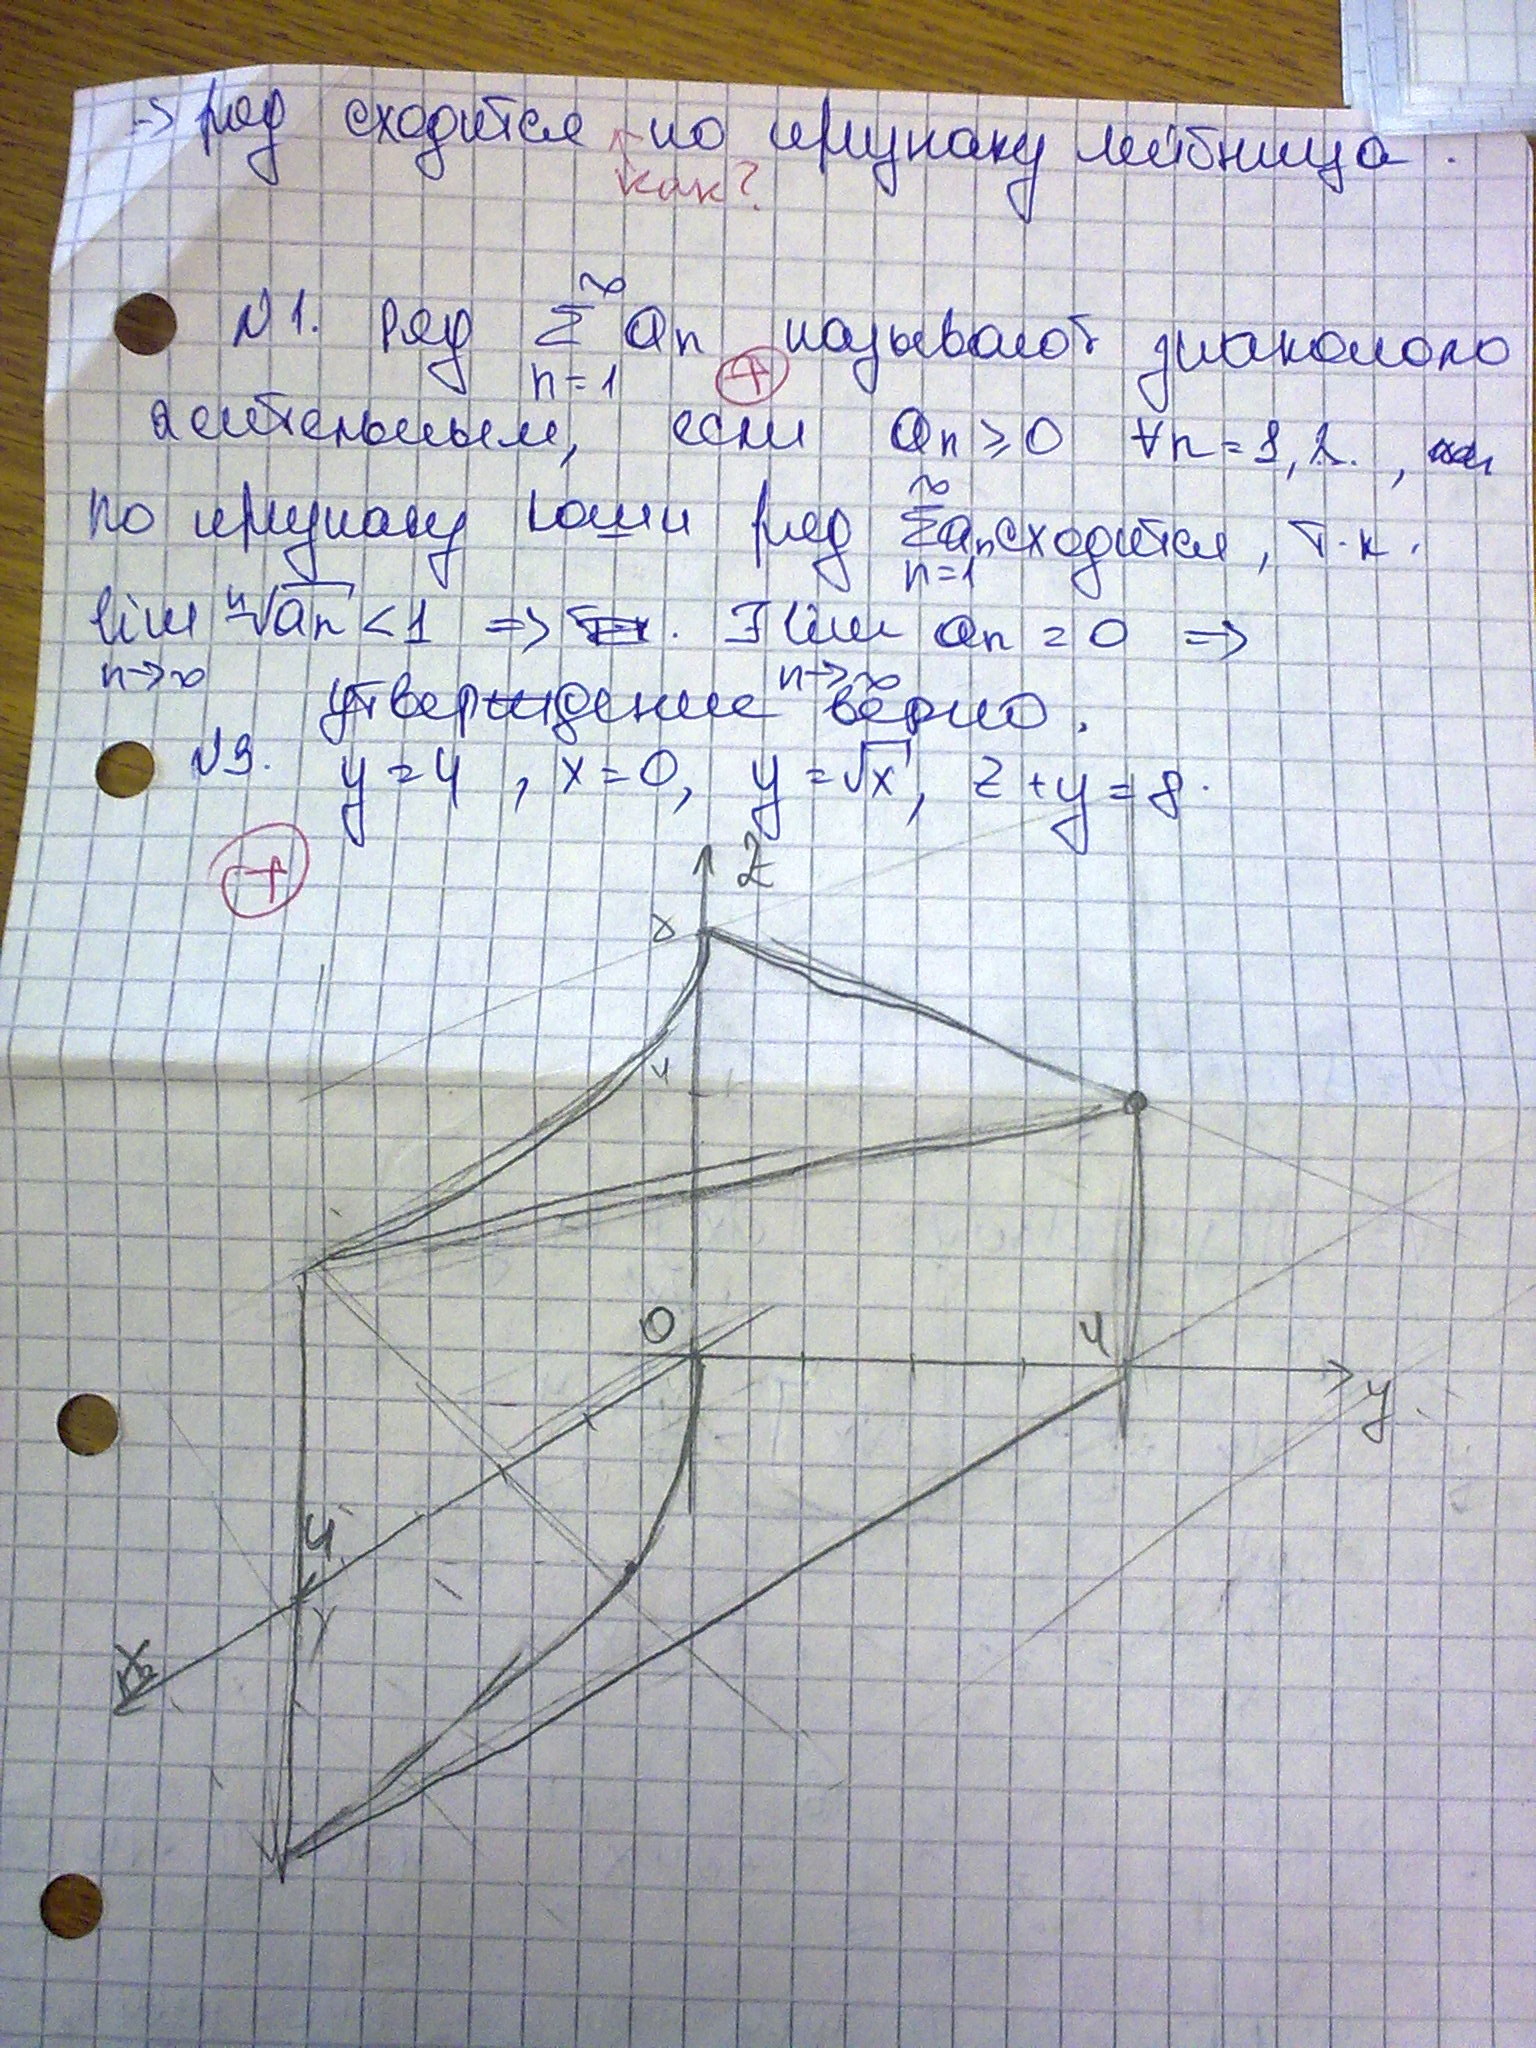 => ряд сходится по признаку лейбница.
как?
N1. Ряд ∑ aₙ называют знакополо
∞
n=1
+
жительным, если aₙ ≥ 0 ∀n = 1, 2..,
по признаку коши ряд ∑ aₙ сходится, т.к.
∞
n=1
lim ⁿ√aₙ < 1 => ∃ lim aₙ = 0 =>
n→∞ n→∞
утверждение верно.
N3. y = 4, x = 0, y = √x, z + y = 8.
+
Z
8
4
O
4
y
4
X